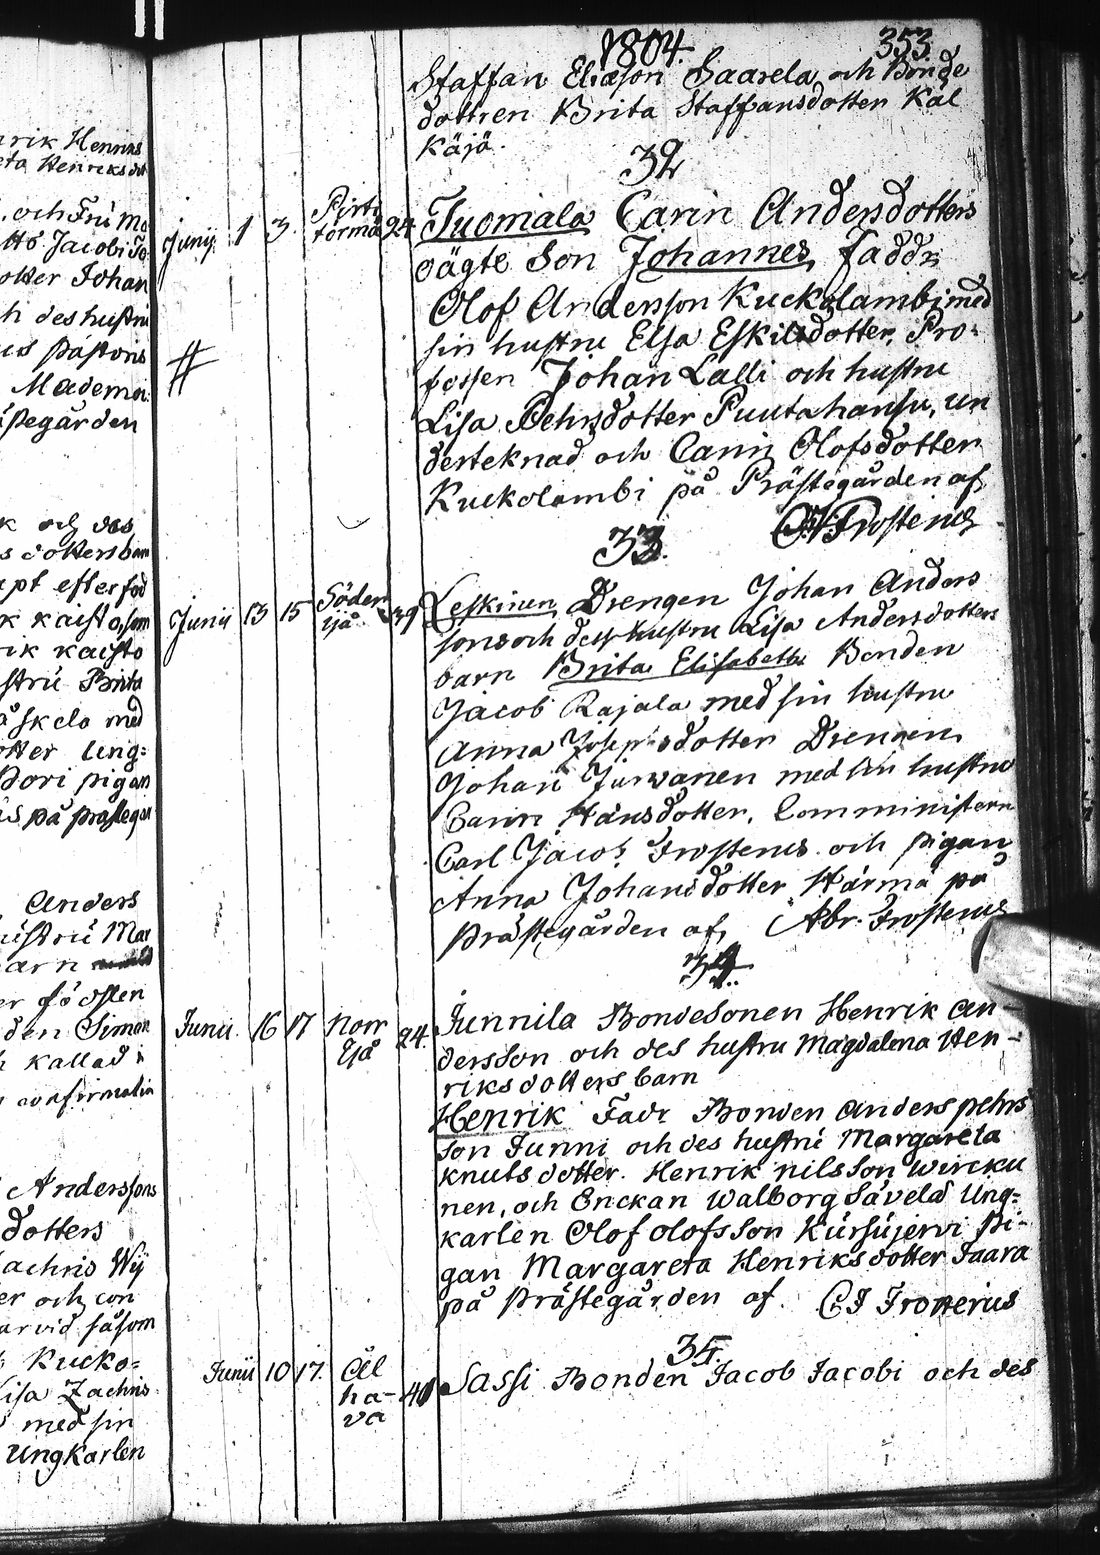 1804. 353.
Staffan Eliæson Saarela och Bonde
dottren Brita Staffansdotter Käl
käjä.
32
Junij 1 3 Pirti
törmä 24 Tuomala Carin Andersdotters
oägte Son Johannes, faddr:
Olof Andersson Kuckolambi med
sin hustru Elsa Eskilsdotter, Pro-
fossen Johan Lalli och hustru
Lisa Pehrsdotter Puutahansu, un
derteknad och Carin Olofsdotter
Kuckolambi på Prästegården af
Frostenus
33.
Junii 13 15 Söder
yjå 39 Leskinen, Drengen Johan Anders
sons och dess hustru Lisa Andersdotters
barn Brita Elisabeth Bonden
Jacob Rajala med sin hustru
Anna Josephsdotter Drengen
Johan Jurvanen med sin hustru
Carin Hansdotter, Comministern
Carl Jacob Frostenus och pigan
Anna Johansdotter Härmä på
Prästegården af Abr. Frostenus
34.
Junii 16 17 Norr
Yjå 24. Junnila Bondesonen Henrik An-
dersson och des hustru Magdalena Hen-
riksdotters barn
Henrik Fadr Bonden Anders Pehrs
son Junni och des hustru Margareta
Knutsdotter. Henrik Nilsson Wircku
nen, och Enckan Walborg Sävelä Ung=
karlen Olof Olofsson Kürsüjervi Pi-
gan Margareta Henriksdotter Jaara
på Prästegården af. CJ Frosterus
35.
Junii 10 17. Al
ha-
va 40 Sassi Bonden Jacob Jacobi och des
rik Henriks
eta Henriksdot
, och Fru Ma
Jacobi Jo
otter Johan
h des hustru
us Pastoris
Mademoi
ästegården
k och des
s dotters barn
pt efter föd
k Kaisto, som
rik Kaisto
stru Brita
skelo med
otter Ung=
Pori pigan
is på Prästegår
Anders
hustru Mar
arn
er födslen
den Simon
h kallad i
confirmatio
Anderssons
dotters
achris Wij
er och con
arvid såsom
Kucko=
isa Zachris
med sin
Ungkarlen